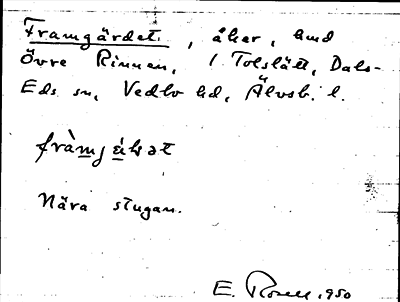 Framgärdet, åker, hmd
Övre Rinnen, 1 Tolslätt, Dals-
Eds sn, Vedbo hd, Älvsb. l.
Nära stugan.
E. Rosell, 1950